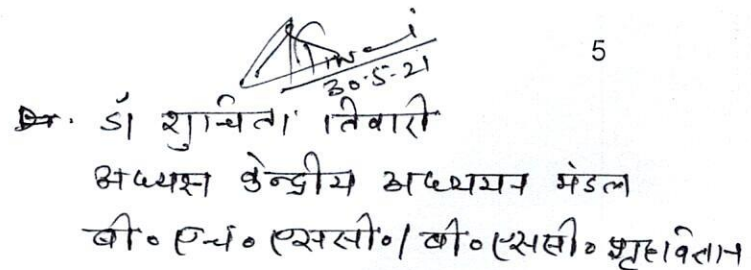 5
30.5.21
डॉ शुचिता तिवारी
अध्यक्ष केन्द्रीय अध्ययन मंडल
बी० एच० एससी० / बी० एससी० गृहविज्ञान